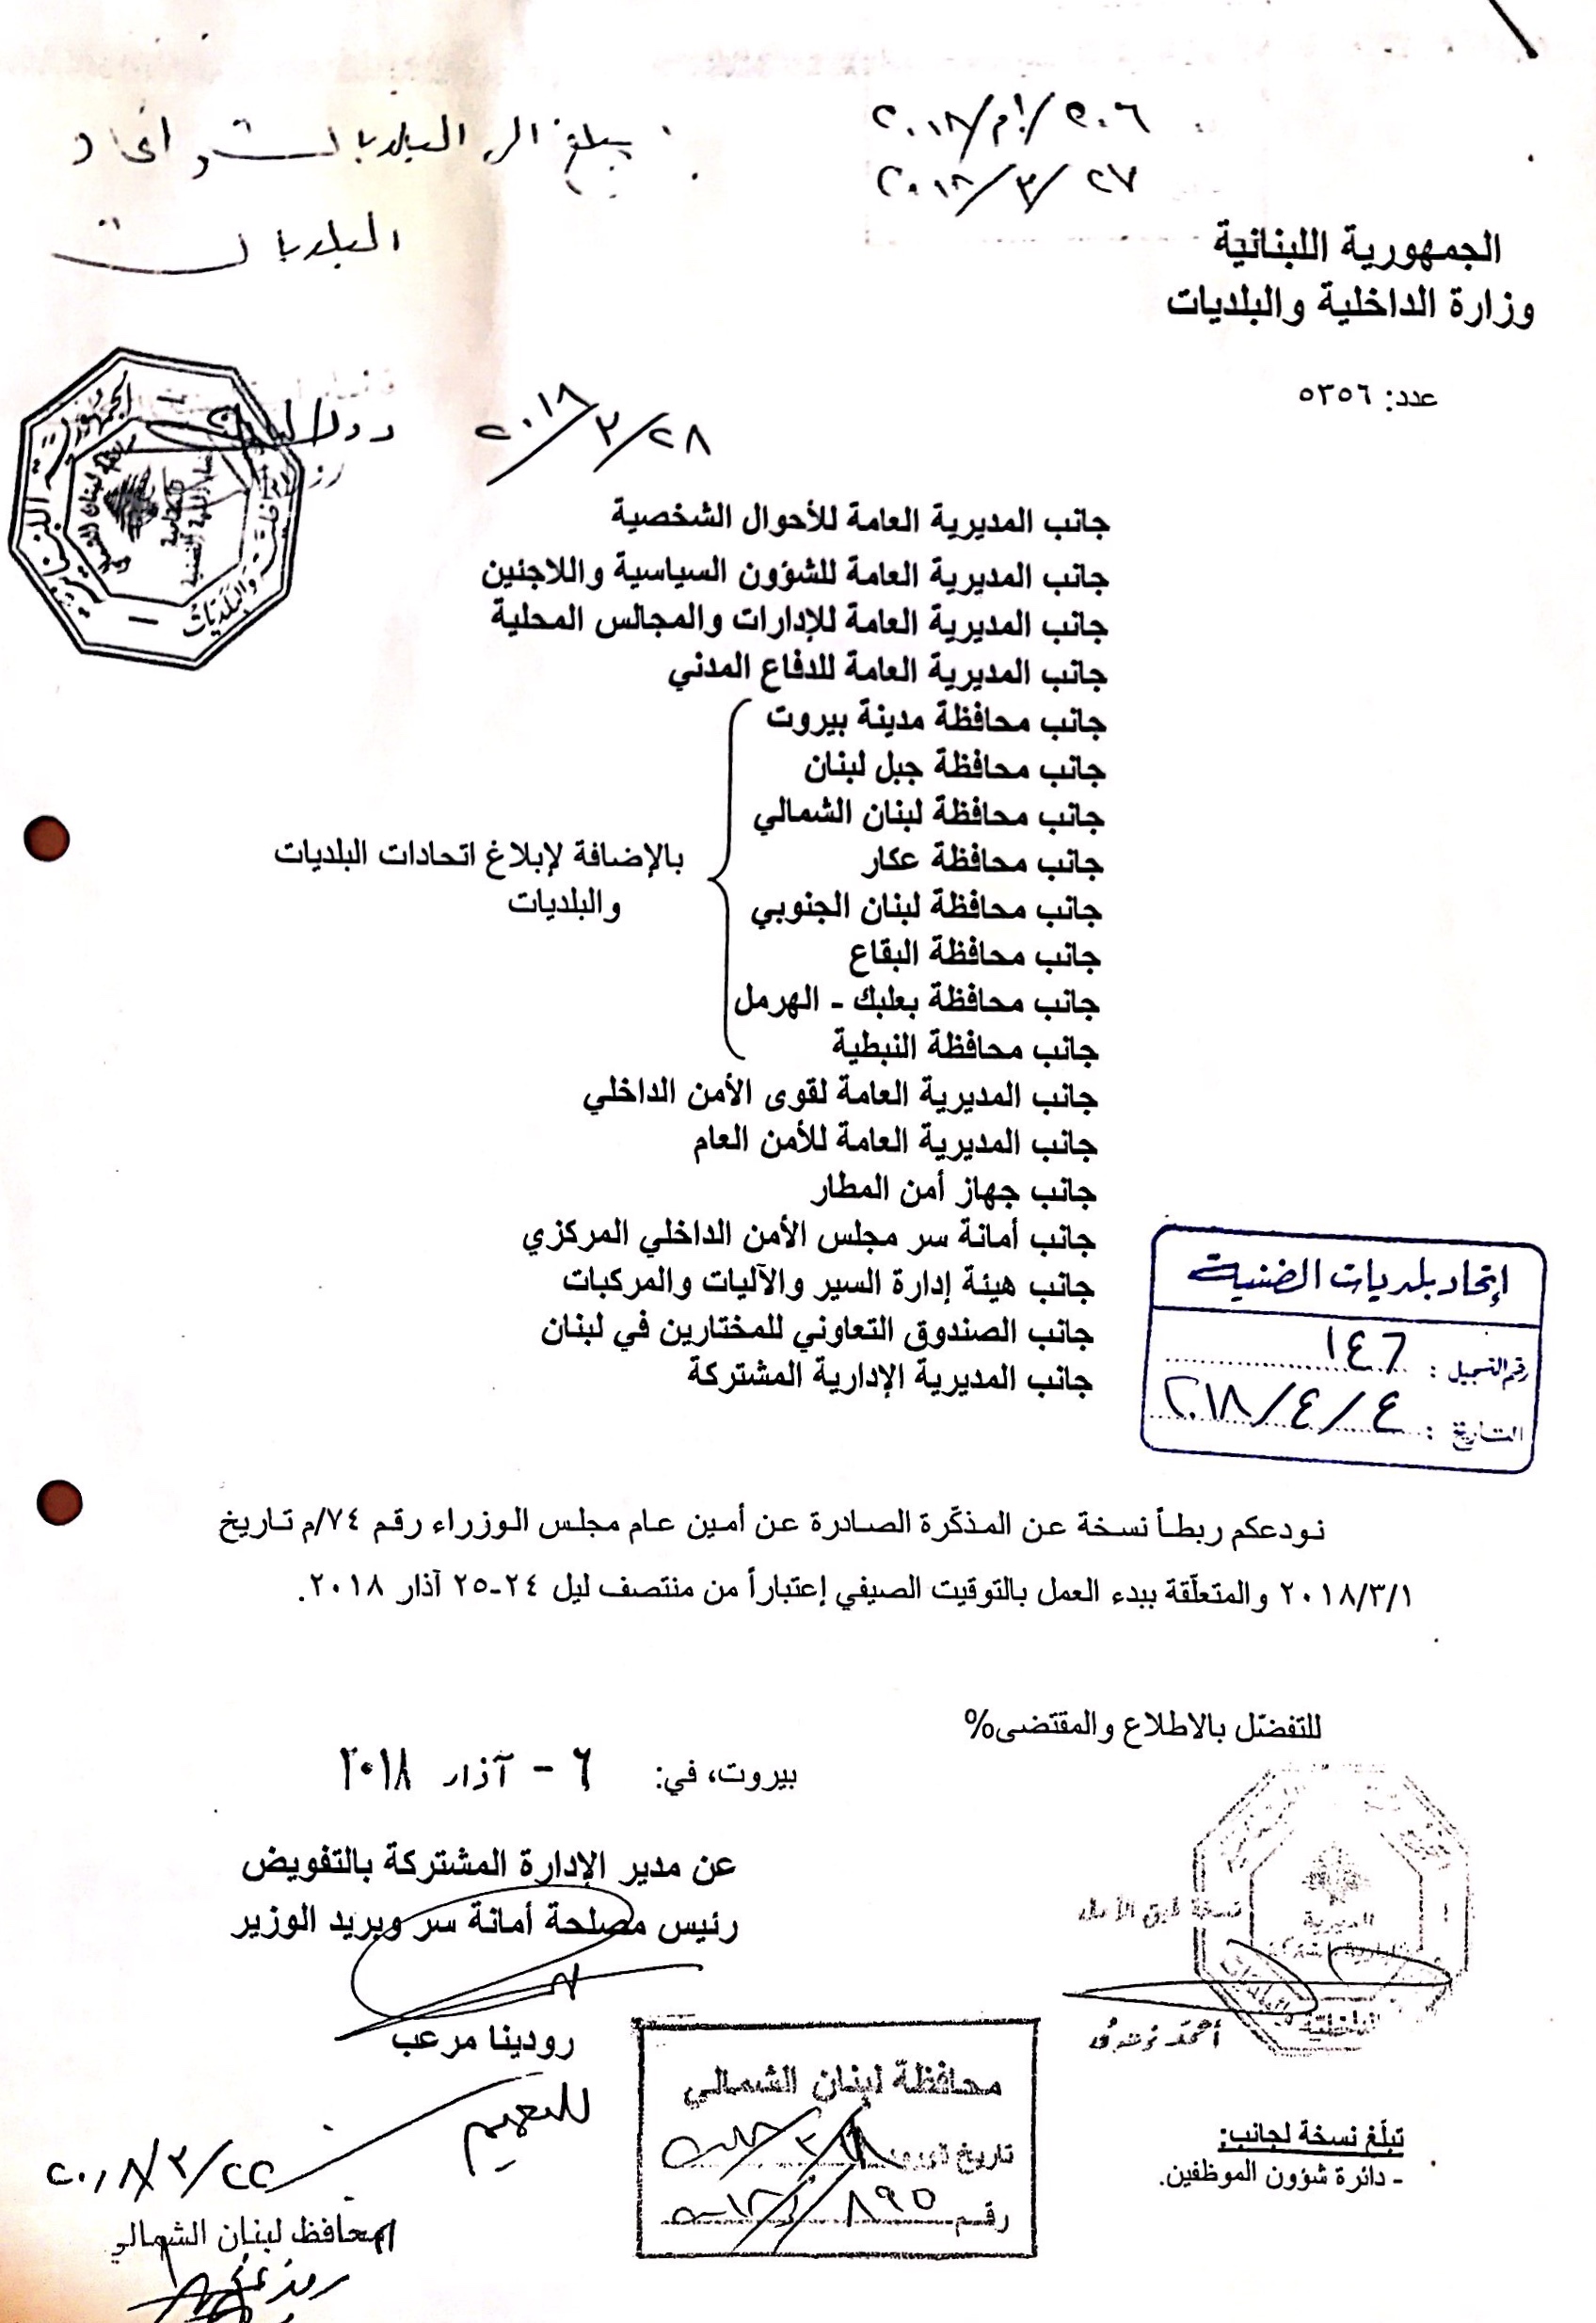 ٢٠٦/أم/٢٠١٨
٢٧/٣/٢٠١٨
يبلغ الى البلديات واتحاد
البلديات
الجمهورية اللبنانية
وزارة الداخلية والبلديات
عدد: ٥٣٥٦
٢٨/٣/٢٠١٨
جانب المديرية العامة للأحوال الشخصية
جانب المديرية العامة للشؤون السياسية واللاجئين
جانب المديرية العامة للإدارات والمجالس المحلية
جانب المديرية العامة للدفاع المدني
جانب محافظة مدينة بيروت
جانب محافظة جبل لبنان
جانب محافظة لبنان الشمالي
جانب محافظة عكار
جانب محافظة لبنان الجنوبي
جانب محافظة البقاع
جانب محافظة بعلبك - الهرمل
جانب محافظة النبطية
بالإضافة لإبلاغ اتحادات البلديات
والبلديات
جانب المديرية العامة لقوى الأمن الداخلي
جانب المديرية العامة للأمن العام
جانب جهاز أمن المطار
جانب أمانة سر مجلس الأمن الداخلي المركزي
جانب هيئة إدارة السير والآليات والمركبات
جانب الصندوق التعاوني للمختارين في لبنان
جانب المديرية الإدارية المشتركة
إتحاد بلديات الضنية
رقم التسجيل : ١٤٦
التاريخ : ٤/٤/٢٠١٨
نودعكم ربطاً نسخة عن المذكّرة الصادرة عن أمين عام مجلس الوزراء رقم ٧٤/م تاريخ
٢٠١٨/٣/١ والمتعلّقة ببدء العمل بالتوقيت الصيفي إعتباراً من منتصف ليل ٢٤-٢٥ آذار ٢٠١٨.
للتفضّل بالاطلاع والمقتضى%
بيروت، في: ٦ - آذار ٢٠١٨
عن مدير الإدارة المشتركة بالتفويض
رئيس مصلحة أمانة سر وبريد الوزير
رودينا مرعب
نسخة طبق الأصل
للتعميم
٢٢/٣/٢٠١٨
محافظ لبنان الشمالي
محافظة لبنان الشمالي
تاريخ
رقم ٨٩٥
تبلّغ نسخة لجانب:
- دائرة شؤون الموظفين.